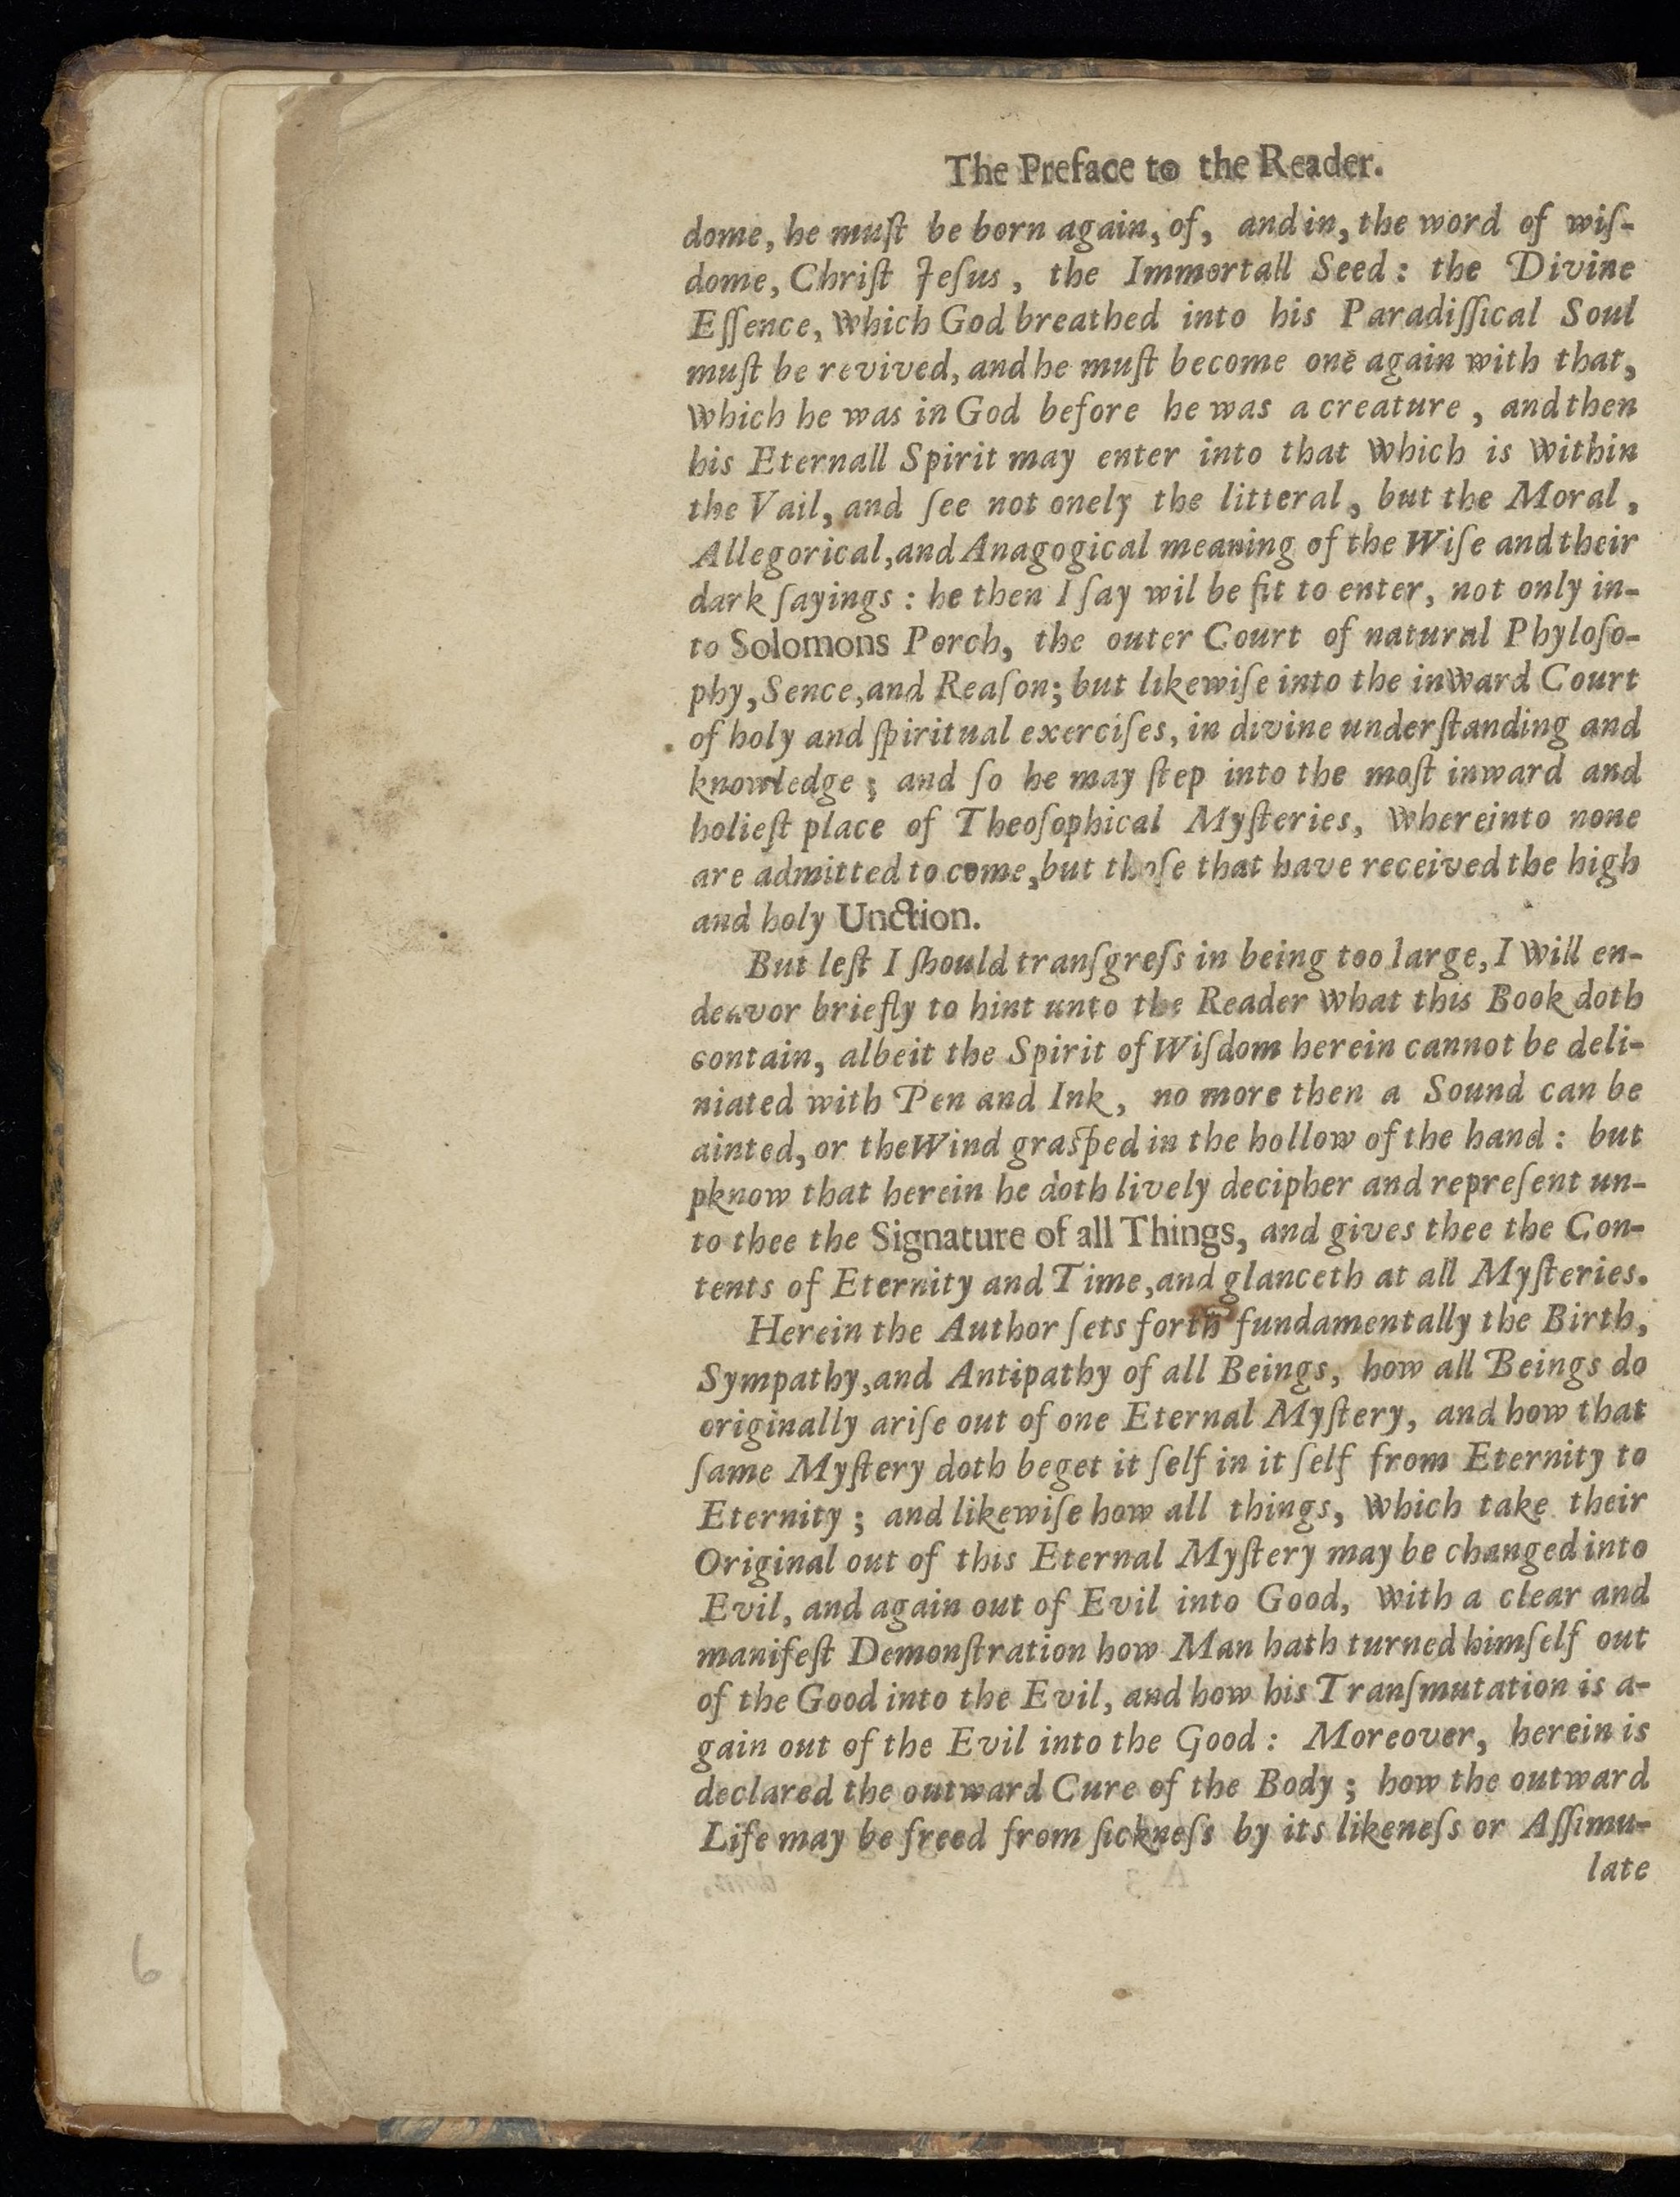 The Preface to the Reader.
dome, he muſt be born again, of, and in, the word of wiſ-
dome, Chriſt Jeſus, the Immortall Seed: the Divine
Eſſence, which God breathed into his Paradiſſical Soul
muſt be revived, and he muſt become one again with that,
which he was in God before he was a creature, and then
his Eternall Spirit may enter into that which is within
the Vail, and ſee not onely the litteral, but the Moral,
Allegorical, and Anagogical meaning of the Wiſe and their
dark ſayings: he then I ſay wil be fit to enter, not only in-
to Solomons Porch, the outer Court of natural Phyloſo-
phy, Sence, and Reaſon; but likewiſe into the inward Court
of holy and ſpiritual exerciſes, in divine underſtanding and
knowledge; and ſo he may ſtep into the moſt inward and
holieſt place of Theoſophical Myſteries, whereinto none
are admitted to come, but thoſe that have received the high
and holy Unction.
But leſt I ſhould tranſgreſs in being too large, I will en-
deavor briefly to hint unto the Reader what this Book doth
contain, albeit the Spirit of Wiſdom herein cannot be deli-
niated with Pen and Ink, no more then a Sound can be
ainted, or the Wind graſped in the hollow of the hand: but
pknow that herein he doth lively decipher and repreſent un-
to thee the Signature of all Things, and gives thee the Con-
tents of Eternity and Time, and glanceth at all Myſteries.
Herein the Author ſets forth fundamentally the Birth,
Sympathy, and Antipathy of all Beings, how all Beings do
originally ariſe out of one Eternal Myſtery, and how that
ſame Myſtery doth beget it ſelf in it ſelf from Eternity to
Eternity; and likewiſe how all things, which take their
Original out of this Eternal Myſtery may be changed into
Evil, and again out of Evil into Good, with a clear and
manifeſt Demonſtration how Man hath turned himſelf out
of the Good into the Evil, and how his Tranſmutation is a-
gain out of the Evil into the Good: Moreover, herein is
declared the outward Cure of the Body; how the outward
Life may be freed from ſickneſs by its likeneſs or Aſſimu-
late
6